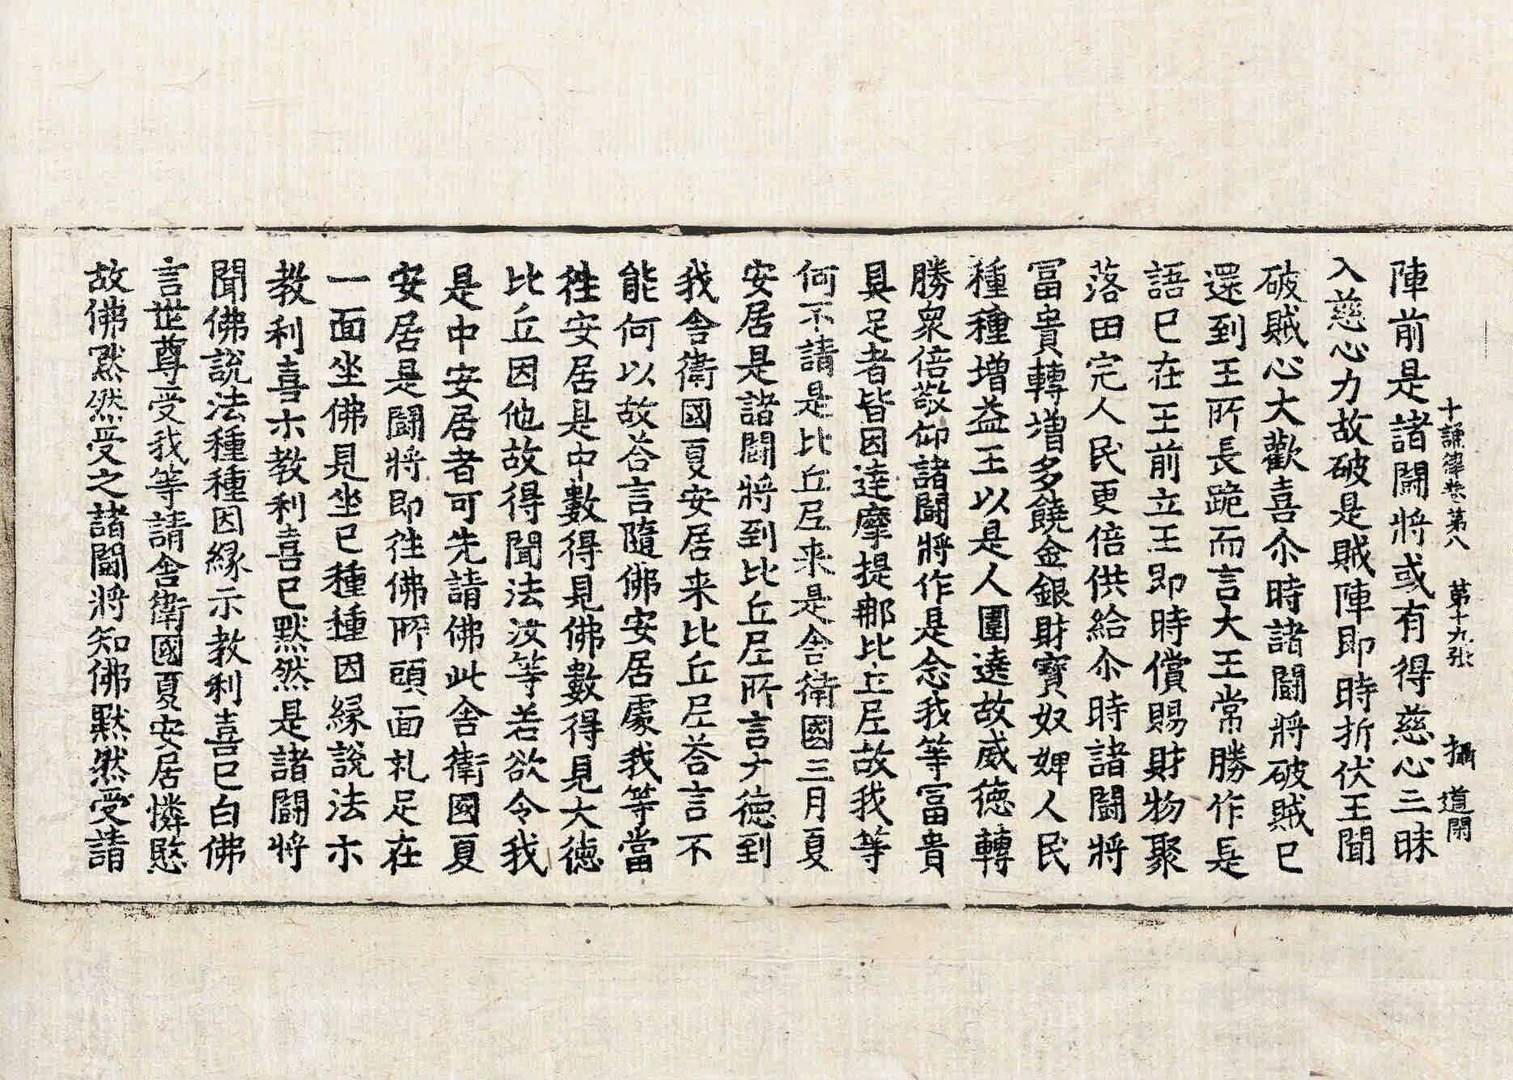 陣前是諸鬪將或有得慈心三昧
十誦律卷第八　第十九張　攝　道閑
入慈心力故破是賊陣即時折伏王聞
破賊心大歡喜尒時諸鬪將破賊已
還到王所長跪而言大王常勝作是
語已在王前立王即時償賜財物聚
落田宅人民更倍供給尒時諸鬪將
冨貴轉增多饒金銀財寶奴婢人民
種種增益王以是人圍遶故威德轉
勝衆倍敬仰諸鬪將作是念我等冨貴
具足者皆因達摩提那比丘尼故我等
何不請是比丘尼来是舍衛國三月夏
安居是諸鬪將到比丘尼所言大德到
我舍衛國夏安居来比丘尼荅言不
能何以故荅言隨佛安居處我等當
往安居是中數得見佛數得見大德
比丘因他故得聞法汝等若欲令我
是中安居者可先請佛此舍衛國夏
安居是鬪將即往佛所頭面礼足在
一面坐佛見坐已種種因緣說法示
教利喜示教利喜已默然是諸鬪將
聞佛說法種種因緣示教利喜已白佛
言世尊受我等請舍衛國夏安居憐愍
故佛默然受之諸鬪將知佛默然受請